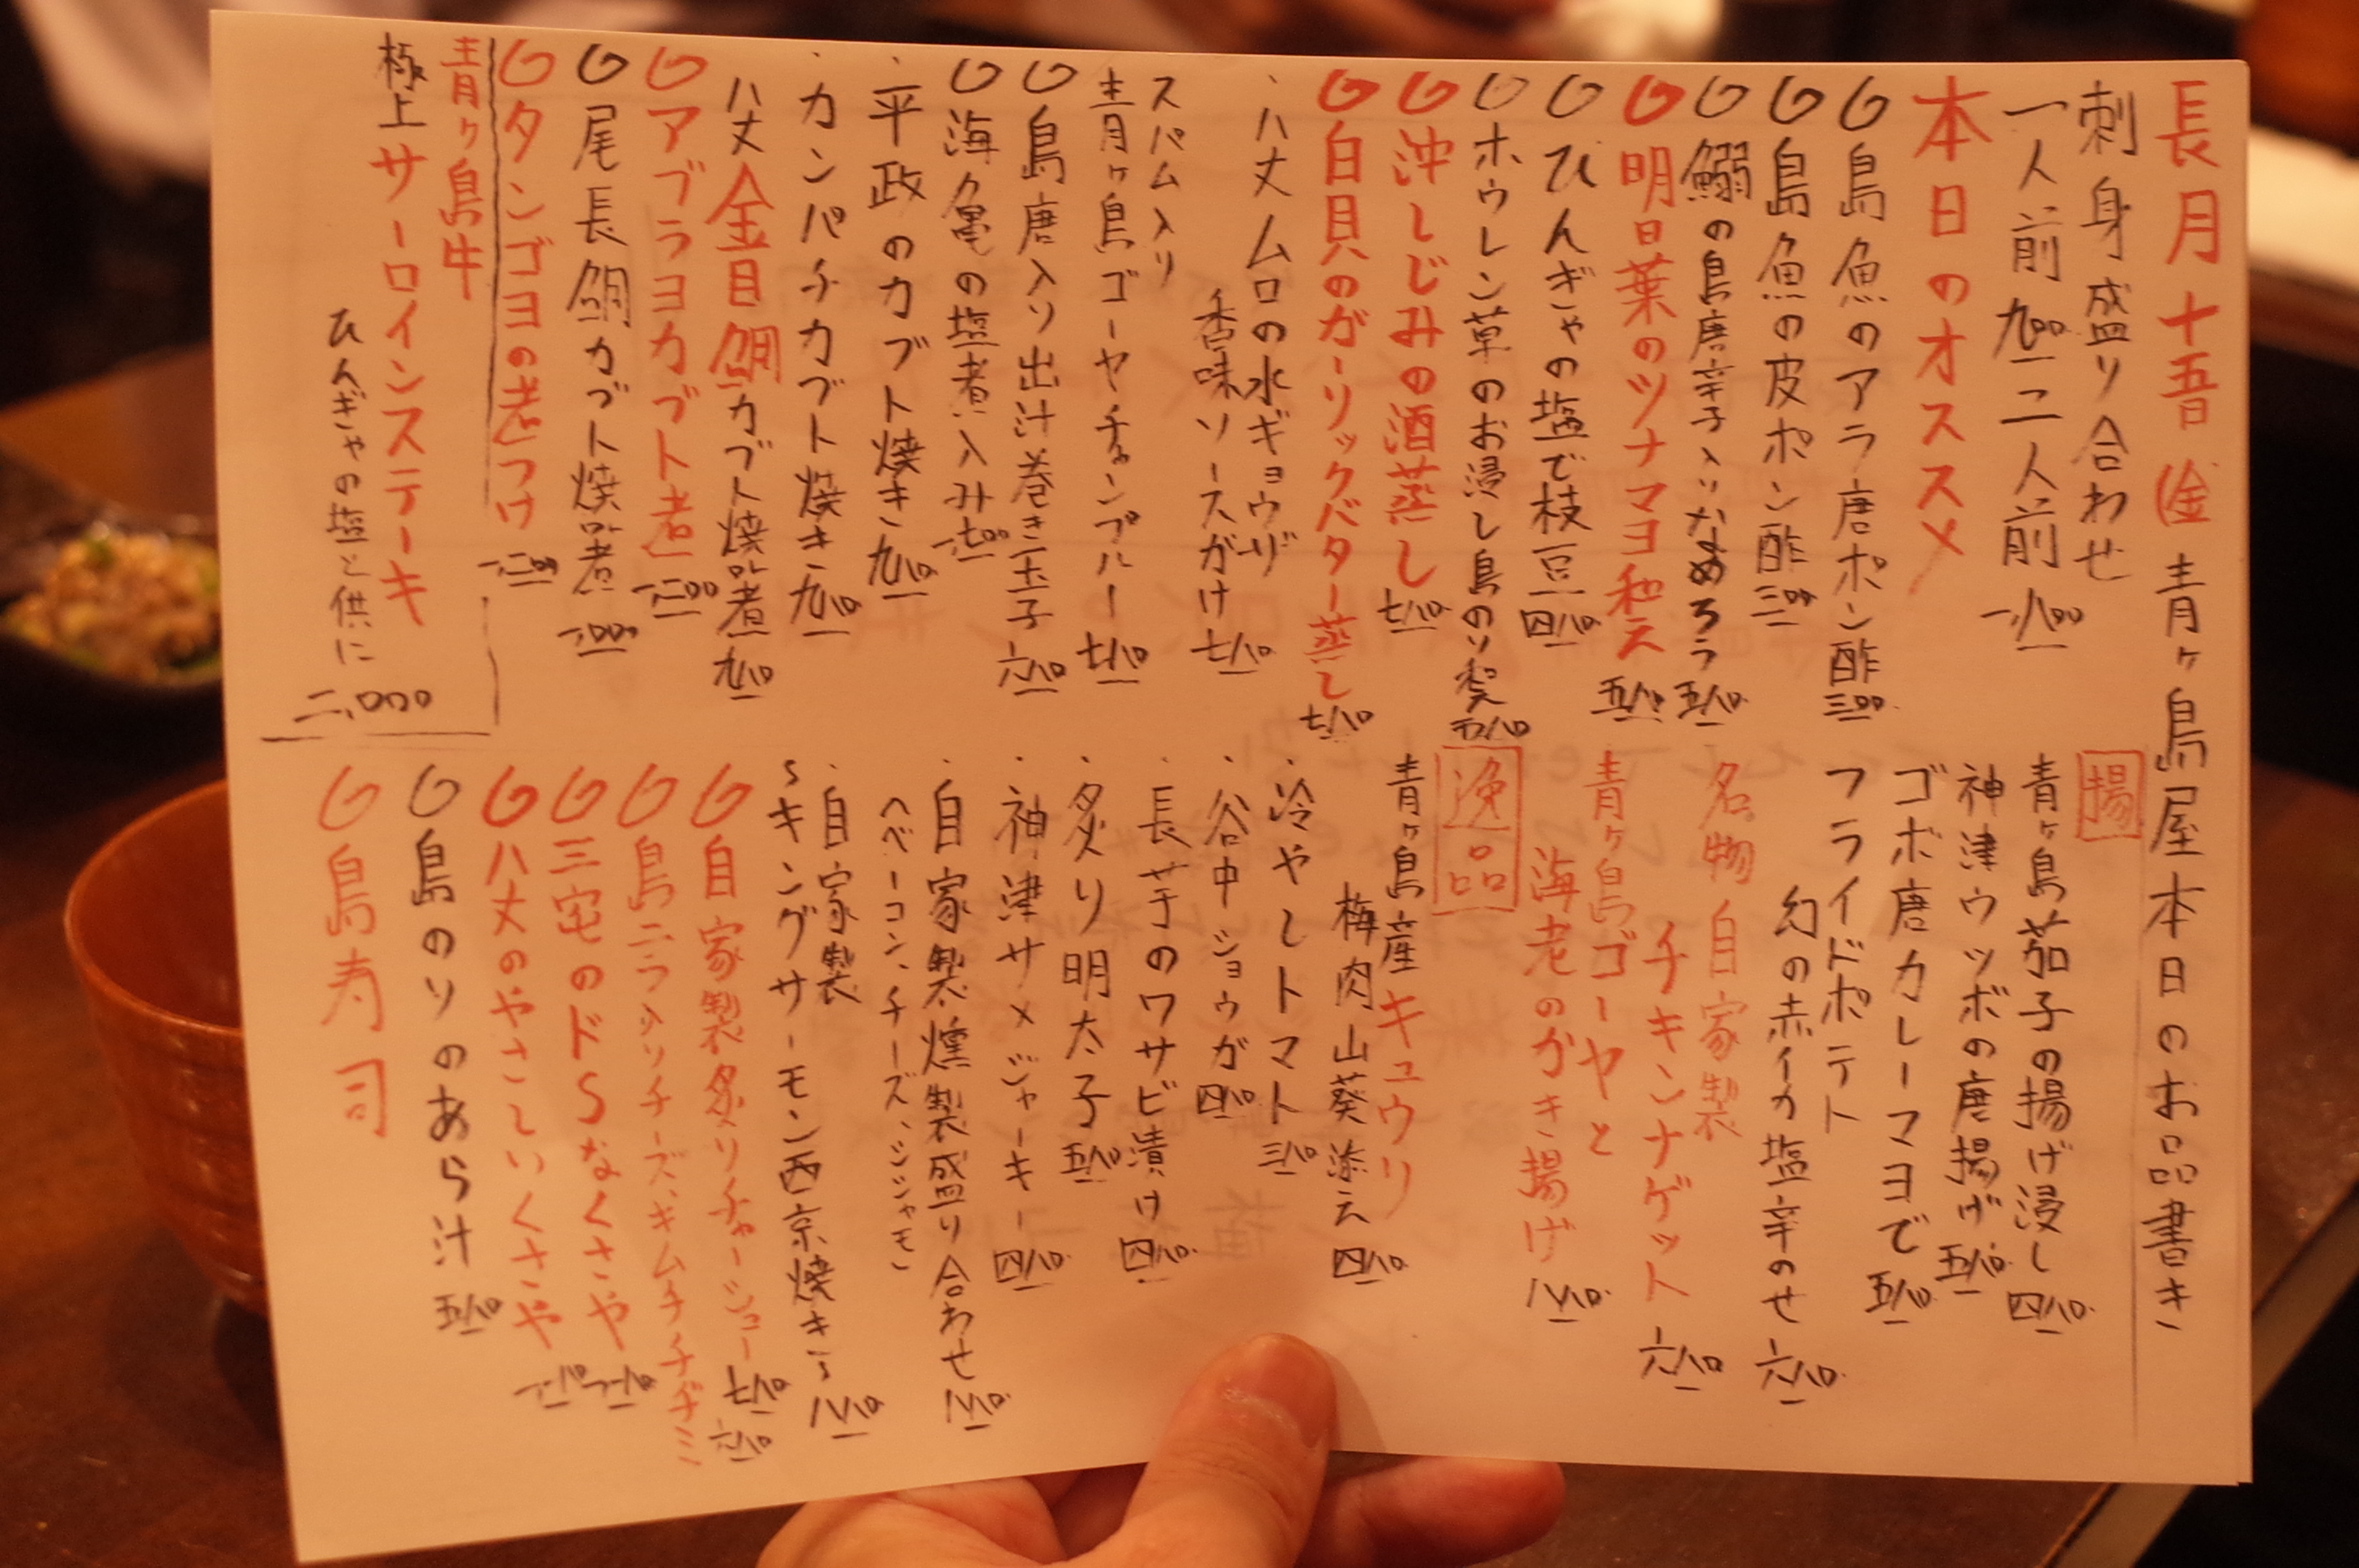 長月十吾(金) 青ヶ島屋本日のお品書き
刺身盛り合わせ
一人前 九00 二人前 一、八00
本日のオススメ
島魚のアラ唐ポン酢 三00
島魚の皮ポン酢 三00
鰯の島唐辛子入りなめろう 五八0
明日葉のツナマヨ和え 五八0
ひんぎゃの塩で枝豆 四八0
ホウレン草のお浸し島のり
沖しじみの酒蒸し 七八0
白貝のガーリックバター蒸し 七八0
・八丈ムロの水ギョウザ
香味ソースがけ 七八0
スパム入り
青ヶ島ゴーヤチャンプルー 七八0
島唐入り出汁巻き玉子 六八0
海亀の塩煮込み
・平政のカブト焼き 九八0
・カンパチカブト焼き 九八0
八丈金目鯛カブト焼or煮 九八0
アブラヨカブト煮
尾長鯛カブト焼or煮
タンゴヨの煮つけ
青ヶ島牛
極上サーロインステーキ
ひんぎゃの塩と供に
二、000
揚
青ヶ島茄子の揚げ浸し 四八0
神津ウツボの唐揚げ 五八0
ゴボ唐カレーマヨで 五八0
フライドポテト
幻の赤イカ塩辛のせ 六八0
名物自家製
チキンナゲット 六八0
青ヶ島ゴーヤと
海老のかき揚げ 八八0
逸品
青ヶ島産キュウリ
梅肉山葵添え 四八0
・冷やしトマト 三八0
・谷中ショウガ 四八0
・長芋のワサビ漬け 四八0
・炙り明太子 五八0
・神津サメジャーキー 四八0
・自家製燻製盛り合わせ 八八0
〈ベーコン、チーズ、シシャモ〉
・自家製
〜キングサーモン西京焼き〜 八八0
自家製炙りチャーシュー 七八0
島ニラ入りチーズ、キムチチヂミ 六八0
三宅のドSなくさや
八丈のやさしいくさや
島のりのあら汁 五八0
島寿司